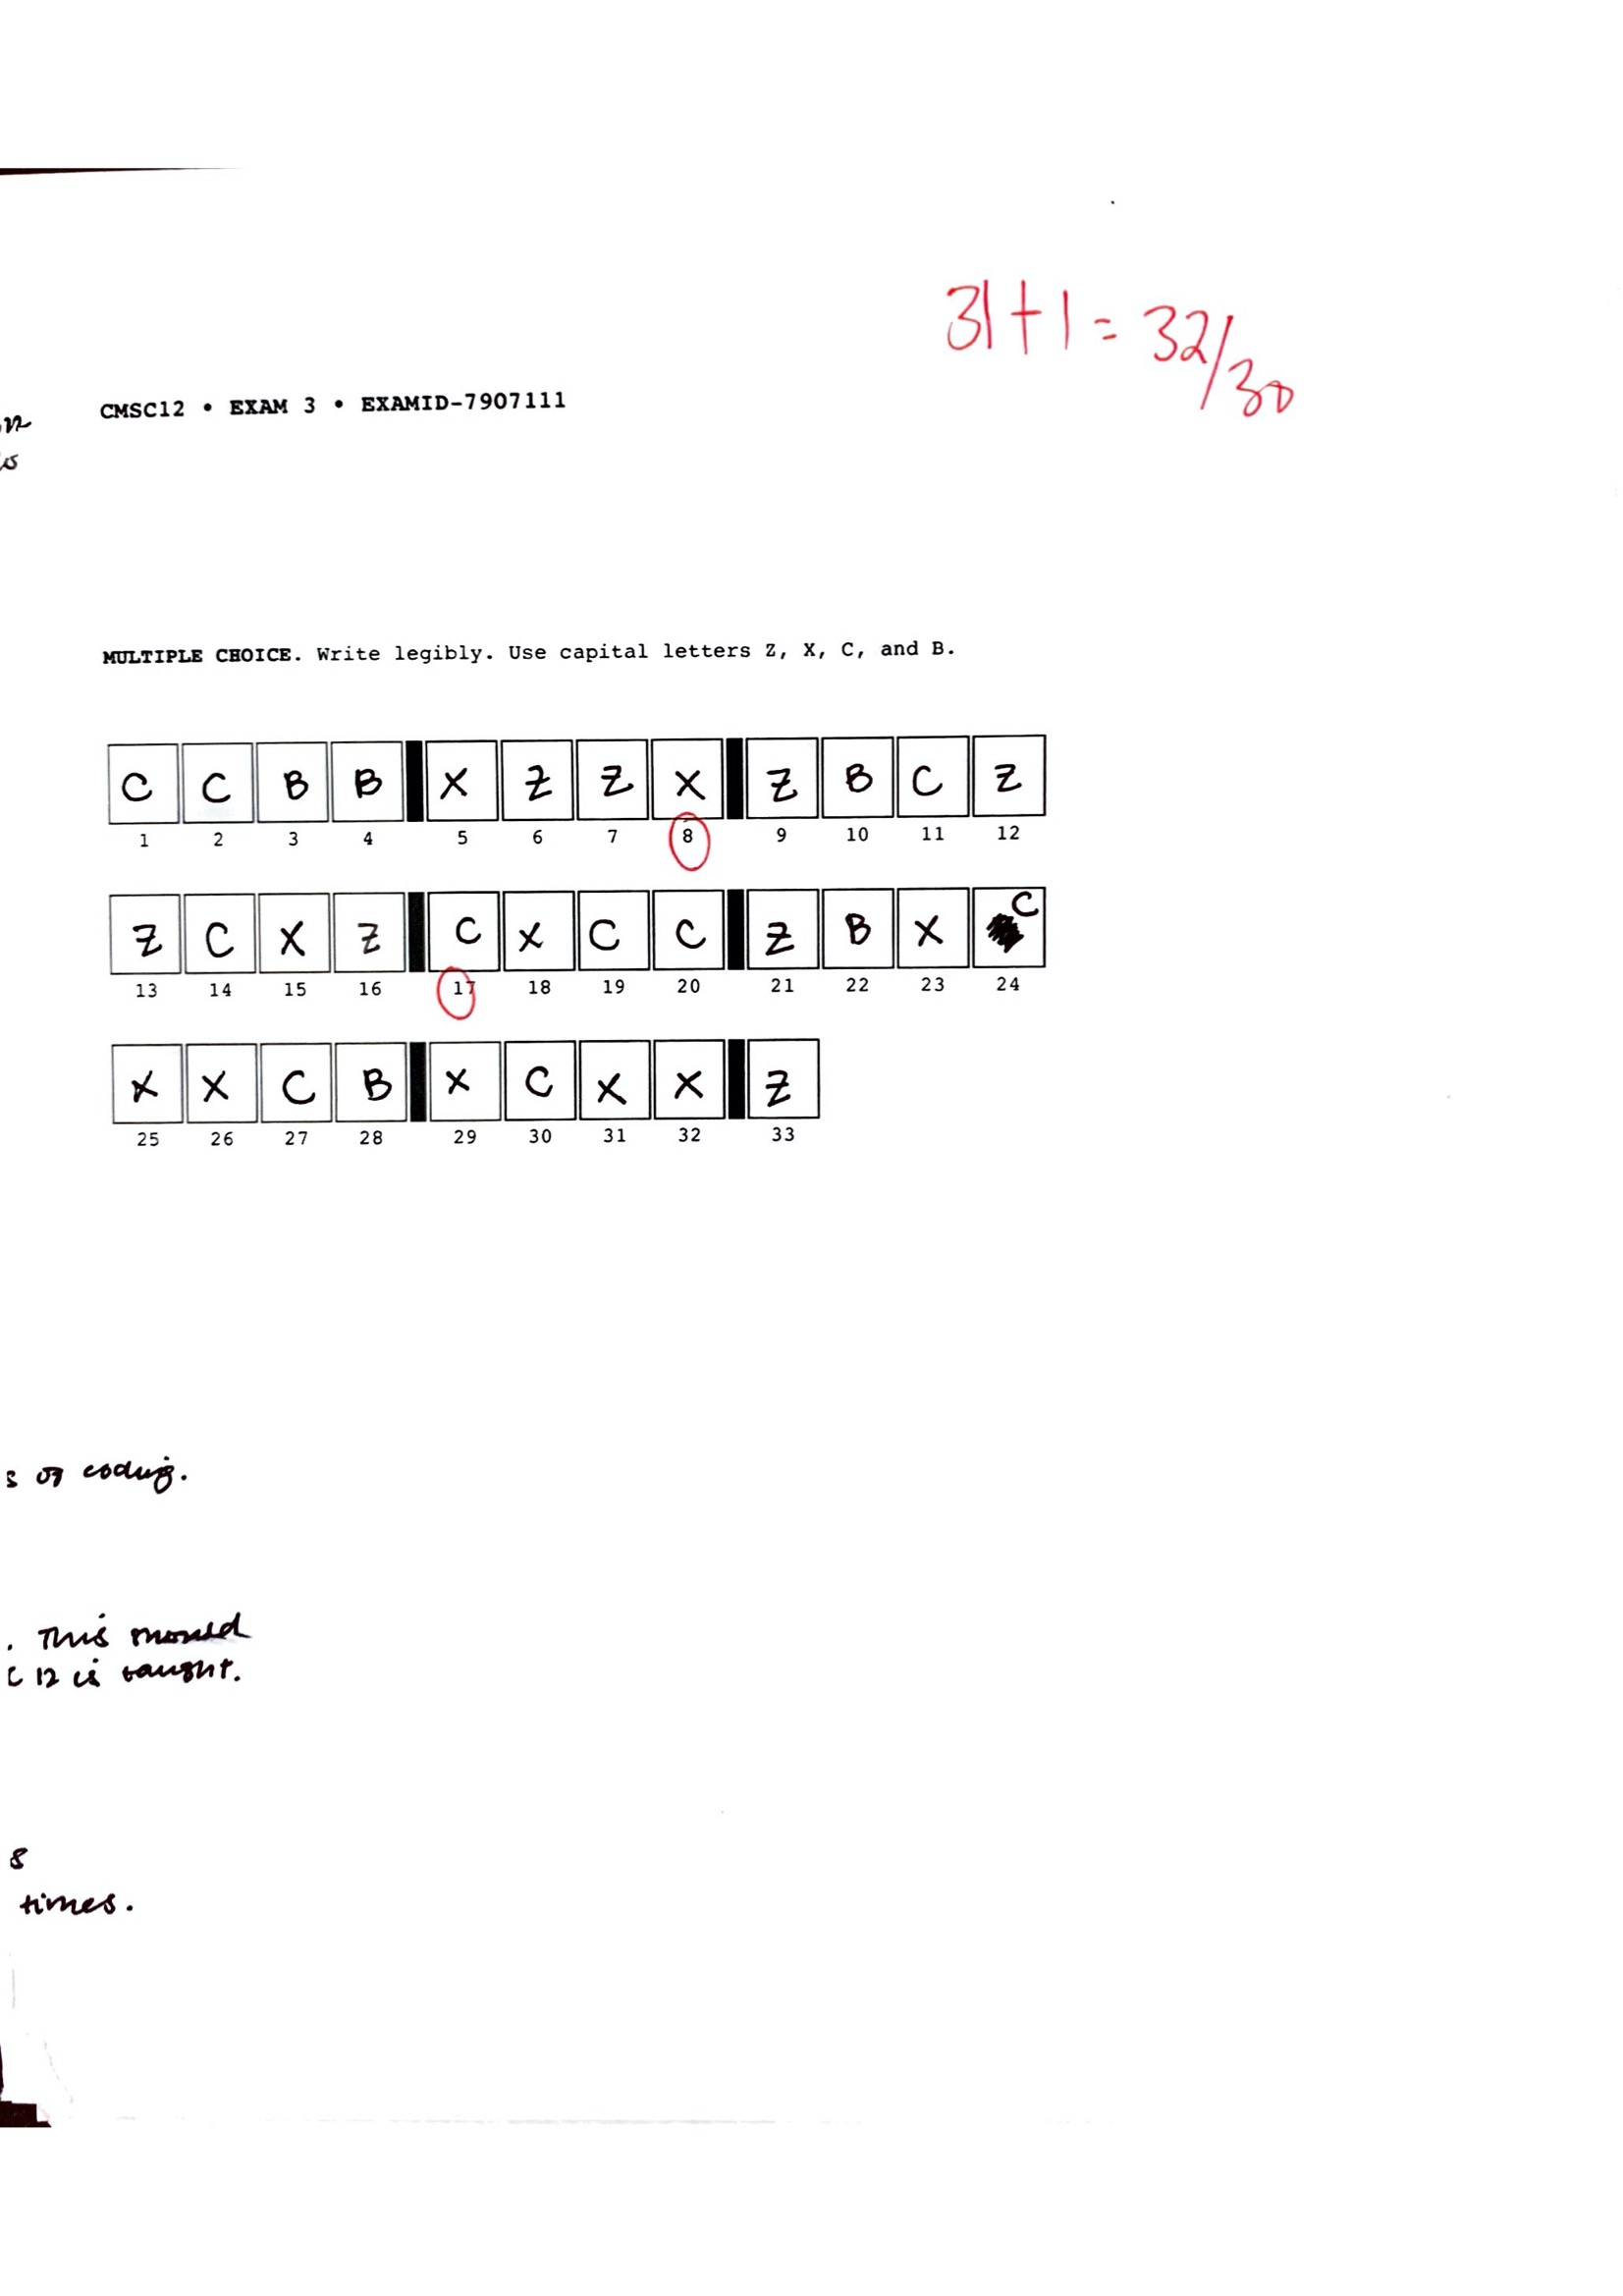 31+1 = 32/30
CMSC12 • EXAM 3 • EXAMID-7907111
MULTIPLE CHOICE. Write legibly. Use capital letters Z, X, C, and B.
C C B B X Z Z X Z B C Z
1 2 3 4 5 6 7 8 9 10 11 12
Z C X Z C X C C Z B X C
13 14 15 16 17 18 19 20 21 22 23 24
X X C B X C X X Z
25 26 27 28 29 30 31 32 33
s of coding.
. This
C 12 is taught.
8
times.